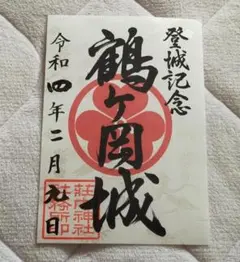 登城記念
鶴ヶ岡城
令和四年二月元日
荘内神社
社務所印